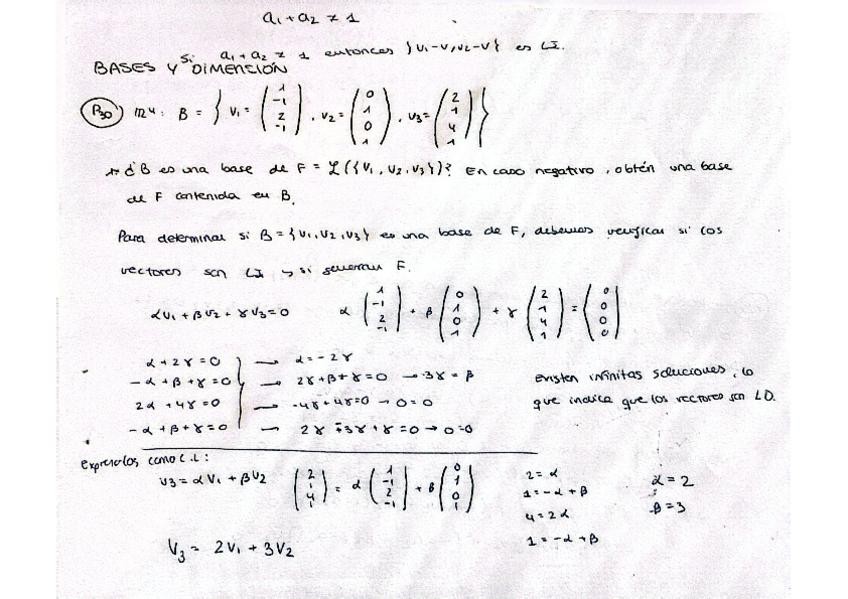 a₁+a₂ ≠ 1
Si a₁+a₂ ≠ 1 entonces {v₁-v, v₂-v} es LI.
BASES Y DIMENSIÓN
P30 m4: B = { v₁ = (1 -1 2 -1), v₂ = (0 1 0 1), v₃ = (2 1 4 1) }
¿B es una base de F = L({v₁, v₂, v₃})? En caso negativo, obtén una base
de F contenida en B.
Para determinar si B = {v₁, v₂, v₃} es una base de F, debemos verificar si los
vectores son LI y si generan F.
αv₁ + βv₂ + γv₃ = 0 α (1 -1 2 -1) + β (0 1 0 1) + γ (2 1 4 1) = (0 0 0 0)
α + 2γ = 0 → α = -2γ
-α + β + γ = 0 → 2γ + β + γ = 0 → -3γ = β
2α + 4γ = 0 → -4γ + 4γ = 0 → 0 = 0
-α + β + γ = 0 → 2γ - 3γ + γ = 0 → 0 = 0
existen infinitas soluciones, lo
que indica que los vectores son LD.
Expresarlos como C.L:
v₃ = αv₁ + βv₂ (2 1 4 1) = α (1 -1 2 -1) + β (0 1 0 1)
2 = α
1 = -α + β
4 = 2α
1 = -α + β
α = 2
β = 3
V₃ = 2V₁ + 3V₂